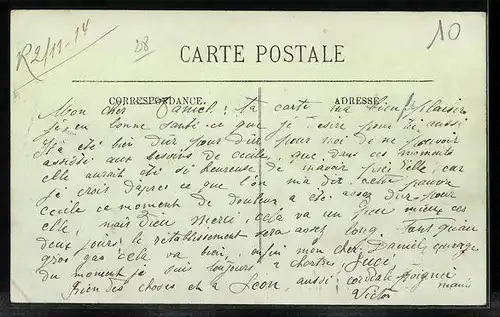 R 2/11-14
28
10
CARTE POSTALE
CORRESPONDANCE. ADRESSE
Mon cher Daniel : ta carte m'a bien plaisir
je en bonne santé ce que je désire pour toi aussi
été bien dur pour moi de ne pouvoir
assister aux besoins de Cécile, que dans ces moments
elle aurait été si heureuse de m'avoir près d'elle, car
je crois d'après ce que l'on m'a dit cette pauvre
Cécile ce moment de douleur a été assez dur pour
elle, mais Dieu merci, cela va un peu mieux ces
deux jours, le rétablissement sera assez long. Tant qu'au
gros gas cela va bien, enfin mon cher Daniel,
du moment je suis toujours à Chartres
Bien des choses et à Léon, aussi cordiale poignée
main
Victor